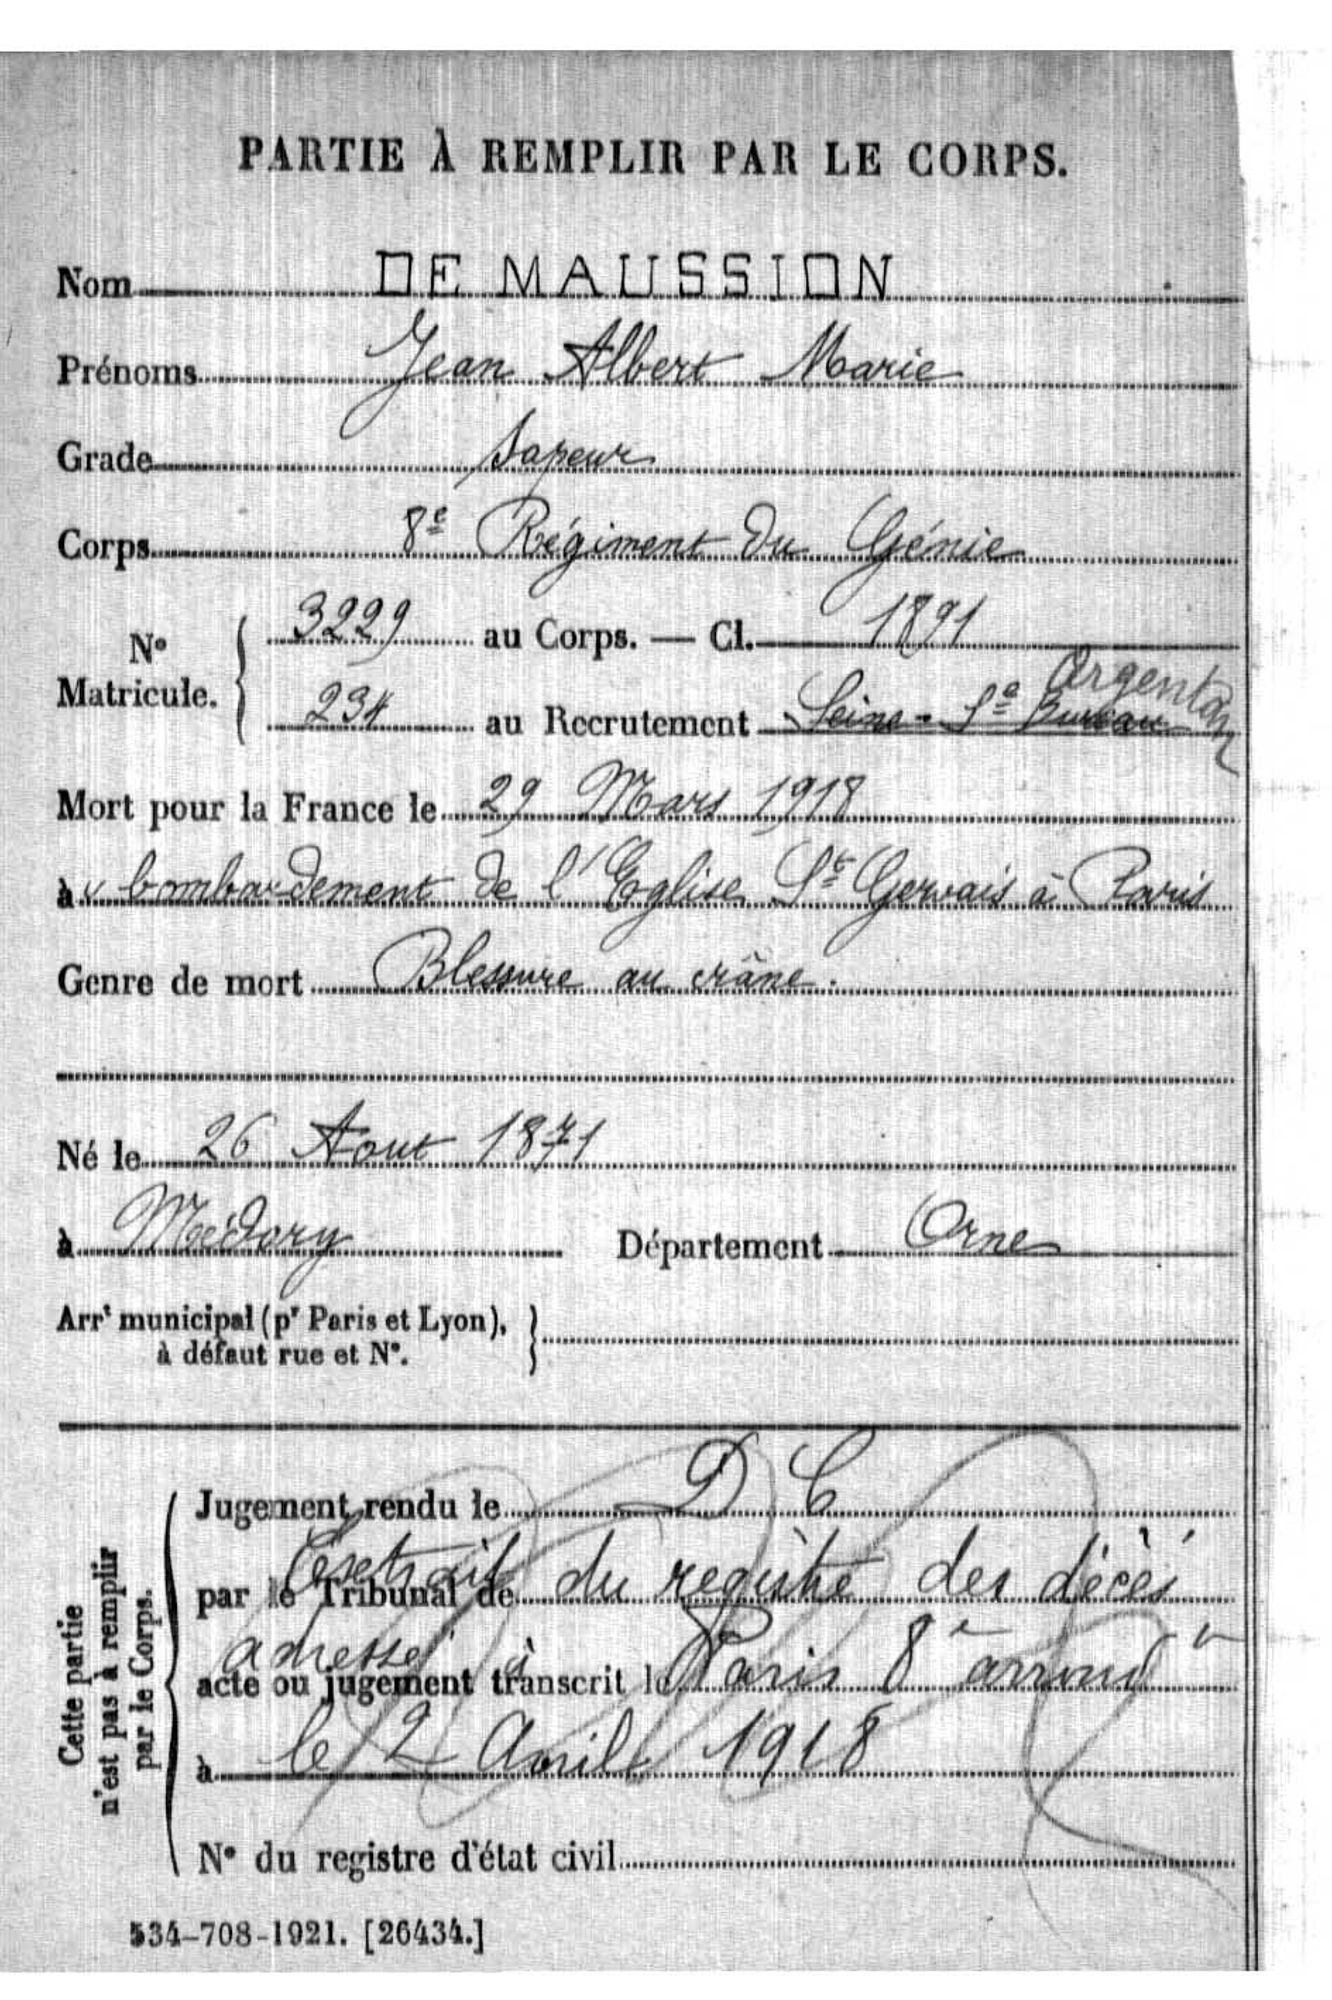 PARTIE À REMPLIR PAR LE CORPS.
Nom DE MAUSSION
Prénoms Jean Albert Marie
Grade Sapeur
Corps 8e Régiment du Génie
N° Matricule. 3229 au Corps. — Cl. 1891
234 au Recrutement Seine - Bureau Argentan
Mort pour la France le 29 Mars 1918
à bombardement de l'Eglise St Gervais à Paris
Genre de mort Blessure au crâne.
Né le 26 Aout 1871
à Médavy Département Orne
Arrt municipal (pr Paris et Lyon),
à défaut rue et N°.
Cette partie
n'est pas à remplir
par le Corps.
Jugement rendu le D C
par le Tribunal de Extrait du registre des décès
acte ou jugement transcrit le adressé à Paris 8e arrondt
à le 2 Avril 1918
N° du registre d'état civil
534-708-1921. [26434.]